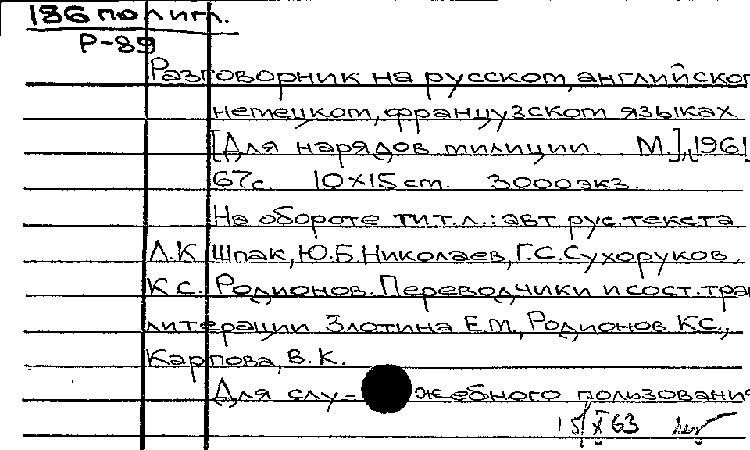 186 полигл.
Р-89
Разговорник на русском, английском
немецком, французском языках
[Для нарядов милиции. М.], 1961
67с. 10×15см. 3000экз.
На обороте тит.л.: авт рус.текста
Л.К Шпак, Ю.Б.Николаев, Г.С.Сухоруков,
К С. Родионов. Переводчики и сост. тран
литерации Злотина Е.М, Родионов К.С.,
Карпова, В.К.
Для слу-жебного пользования
15/X 63